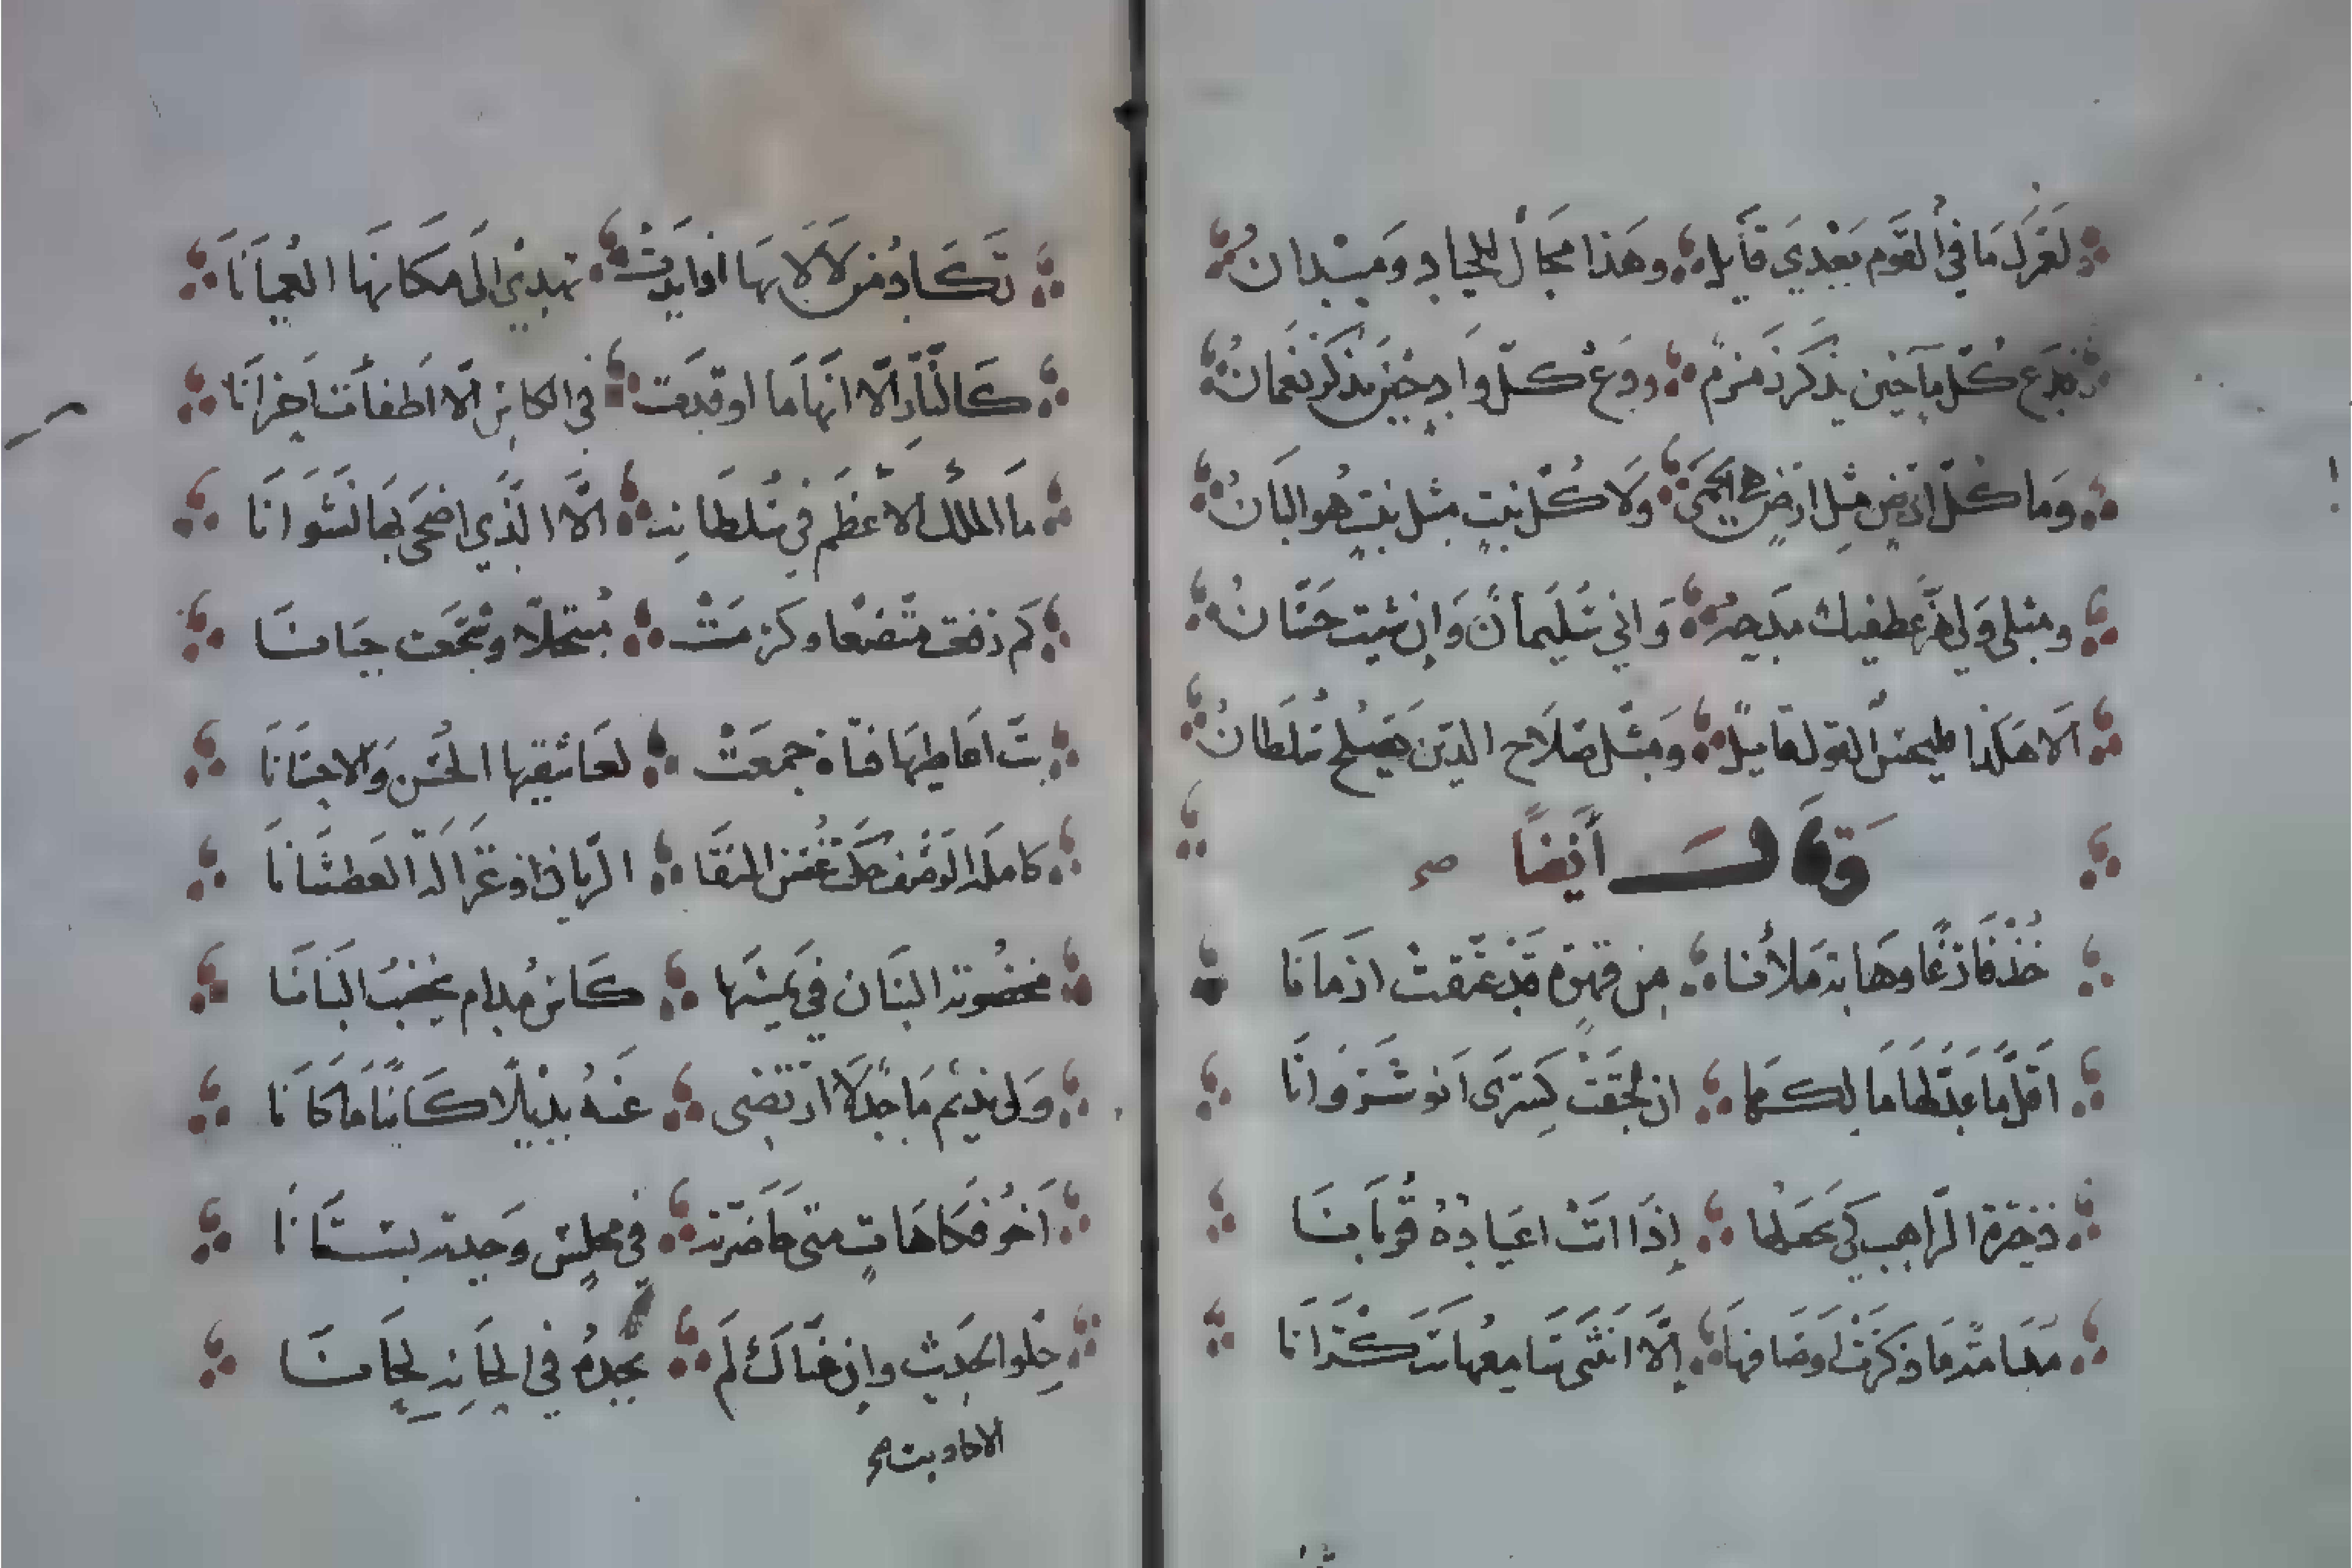 لغزل ما في القوم بعدي قايل وهذا مجال للجياد وميدان
فدع كل ماء حين يذكر زمزم ودع كل واد حين يذكر نعمان
وما كل ارض مثل ارض هي الحمى ولا كل نبت مثل نبت هو البان
ومثلي ولي هز عطفيك مدحه واني سليمان وان شيت حسان
الا هكذا فليحسن القول قايل ومثل صلاح الدين يصلح سلطان
وقال أيضا صح
خذ فارغا وهاته ملأنا من قهوة قد عتقت ازمانا
اقل ما عد لها مالكها ان لحقت كسرى انو شروانا
ذخيرة الراهب كي يجعلها إذا اتت اعياده قربانا
مدامة ما ذكرت اوصافها إلا انثنى سامعها سكرانا
تكاد من لألايها اذا بدت تهدي الى مكانها العميانا
كالنار الا انها ما اوقدت في الكاس الا اطفأت احزانا
ما الملك الاعظم في سلطانه الا الذي اضحى بها نشوانا
كم رفعت متضعا وكرمت مبخلا وشجعت جبانا
بت اعاطيها فتاة جمعت لعاشقيها الحسن والاحسانا
كاملة الوصف حكت غصن النقا الريان او غزاله العطشانا
مخضوبة البنان في يمينها كاس مدام يخضب البنانا
ولي نديم ماجد لا ارتضي عنه بديلا كاينا ما كانا
اخو فكاهات متى حاضرته في مجلس وجدته بستانا
حلو الحديث وان غناك لم تجده في الحانه لحانا
الاحاديث صح